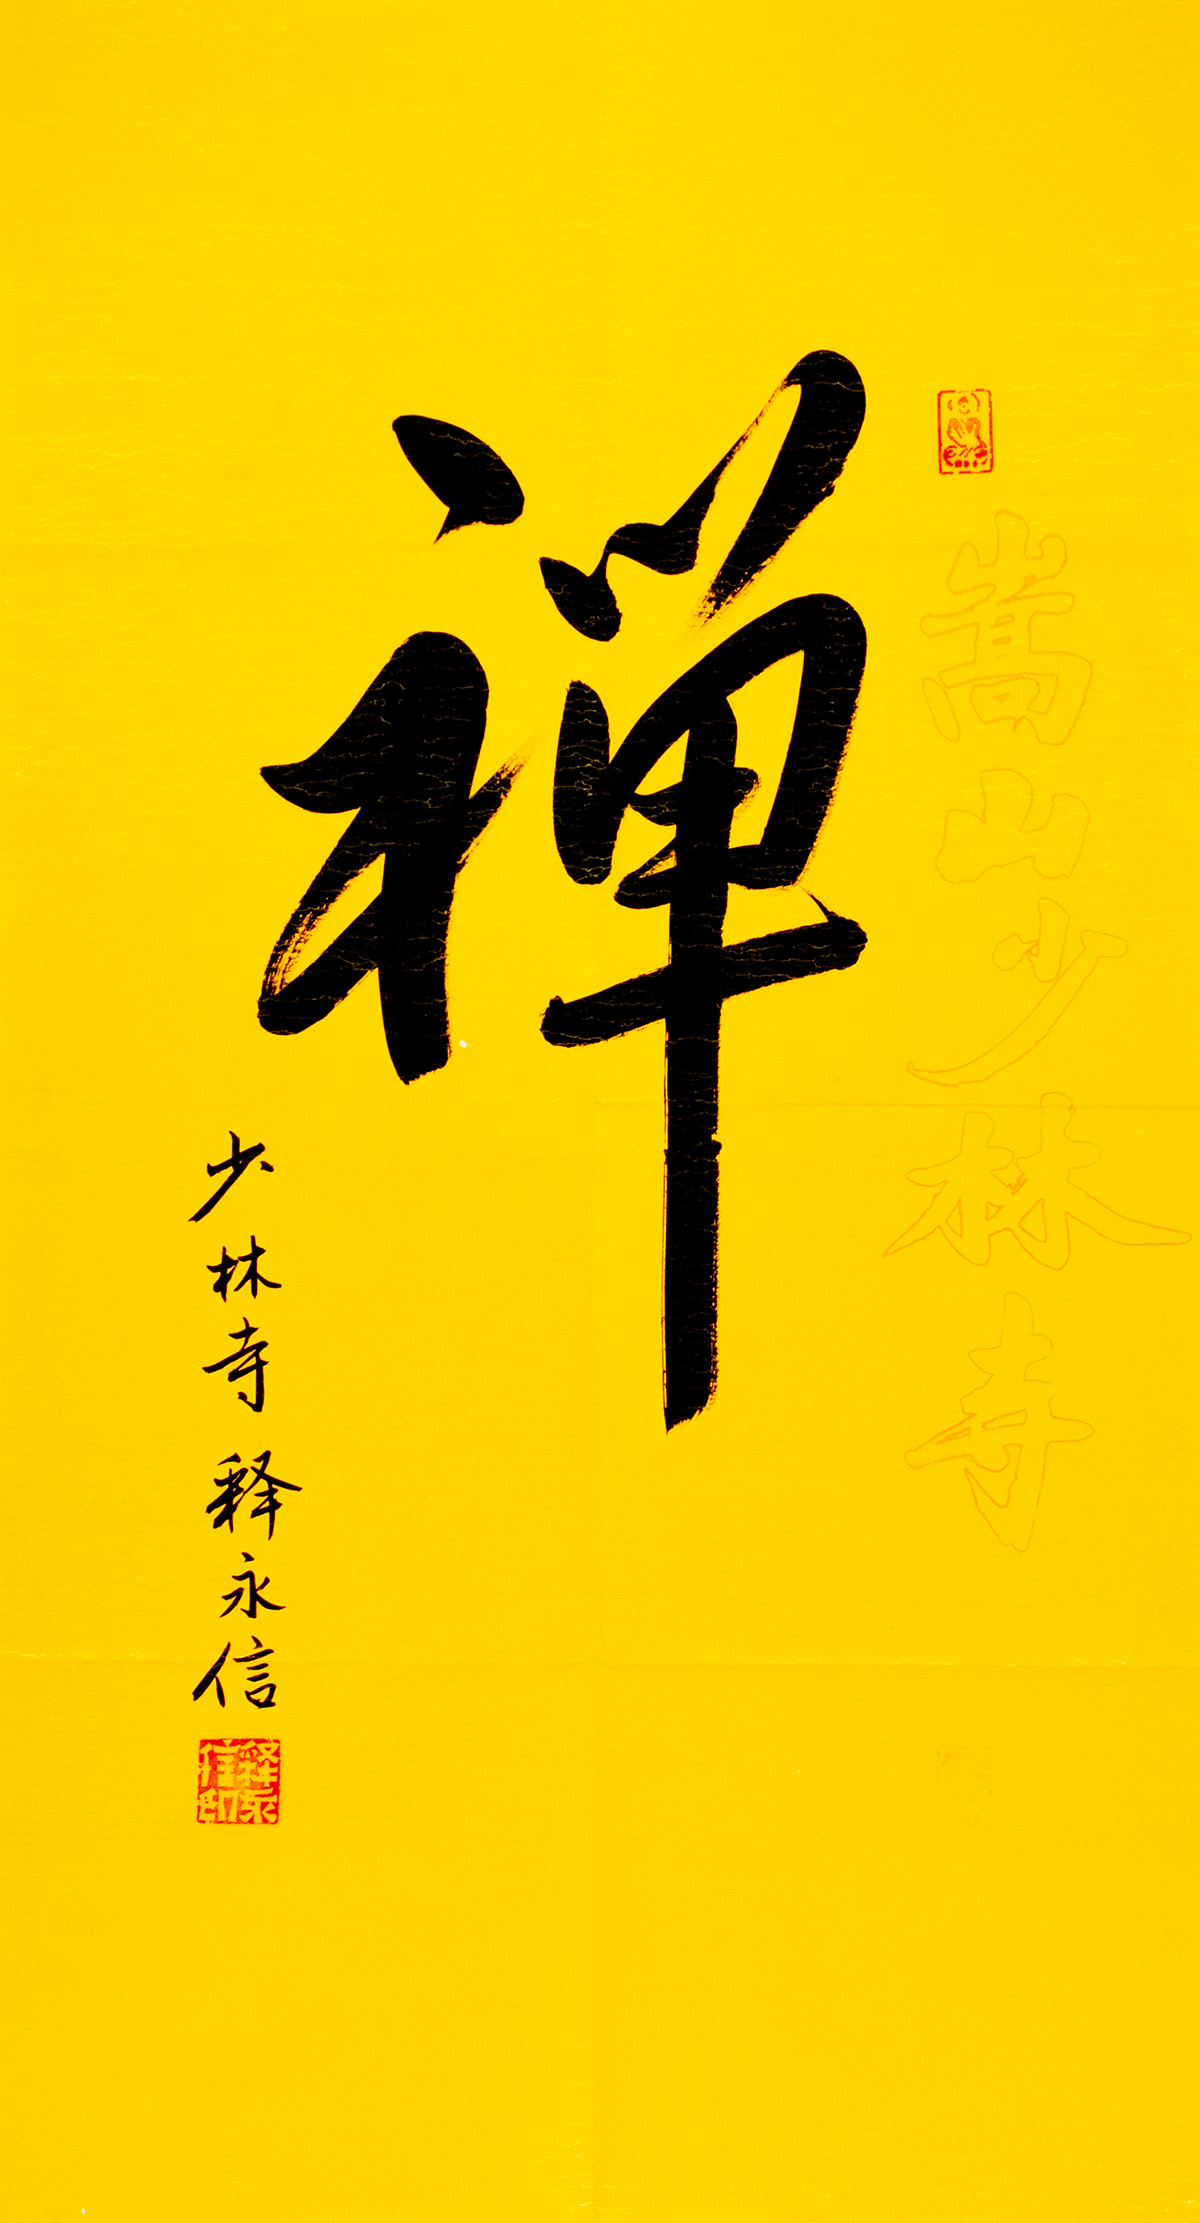 嵩山少林寺
禅
少林寺 释永信
释永信印